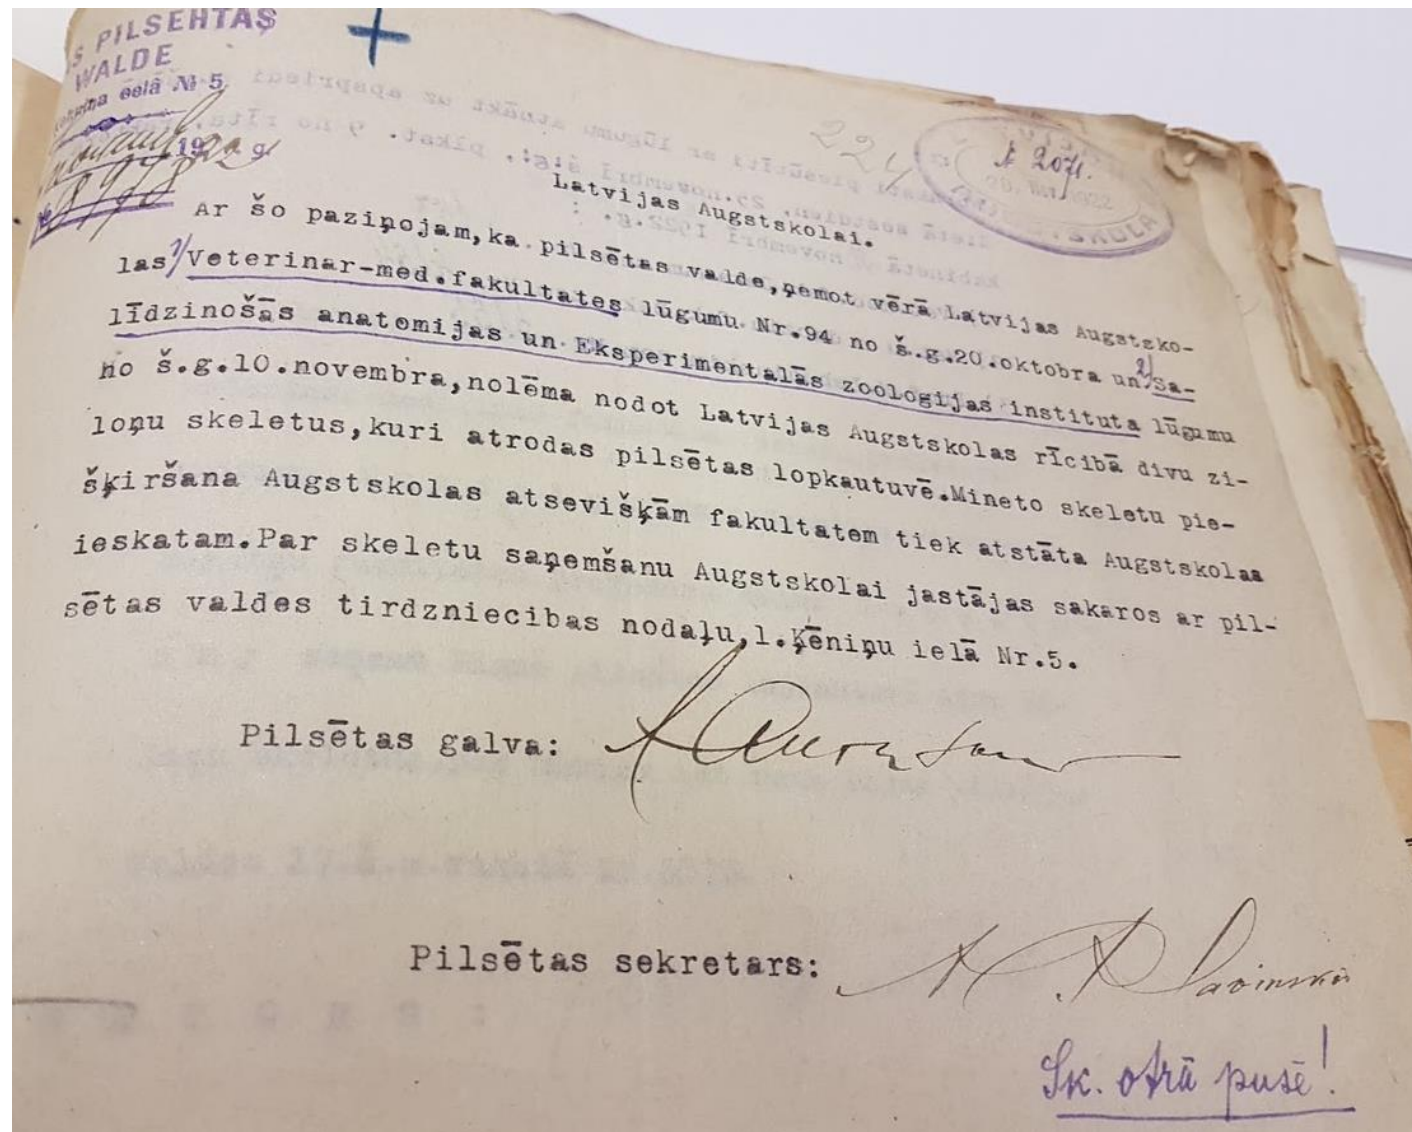 S PILSEHTAS
WALDE
eelâ № 5
1922 g.
№ 8978
224
№ 2071.
20. 1922
SKOLA
Latvijas Augstskolai.
Ar šo paziņojam,ka pilsētas valde,ņemot vērā Latvijas Augstsko-
las 1/ Veterinar-med.fakultates lūgumu Nr.94 no š.g.20.oktobra un 2/ Sa-
līdzinošās anatomijas un Eksperimentalās zoologijas instituta lūgumu
no š.g.10.novembra,nolēma nodot Latvijas Augstskolas rīcībā divu zi-
loņu skeletus,kuri atrodas pilsētas lopkautuvē.Mineto skeletu pie-
šķiršana Augstskolas atsevišķām fakultatem tiek atstāta Augstskolas
ieskatam.Par skeletu saņemšanu Augstskolai jastājas sakaros ar pil-
sētas valdes tirdzniecibas nodaļu,l.Ķēniņu ielā Nr.5.
Pilsētas galva:
Pilsētas sekretars:
Sk. otrā pusē!